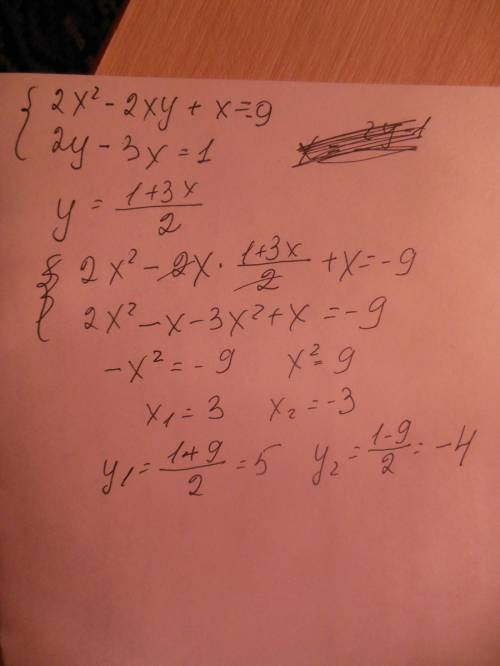 2x² - 2xy + x = -9
2y - 3x = 1
y = (1+3x)/2
2x² - 2x · (1+3x)/2 + x = -9
2x² - x - 3x² + x = -9
-x² = -9 x² = 9
x₁ = 3 x₂ = -3
y₁ = (1+9)/2 = 5 y₂ = (1-9)/2 = -4